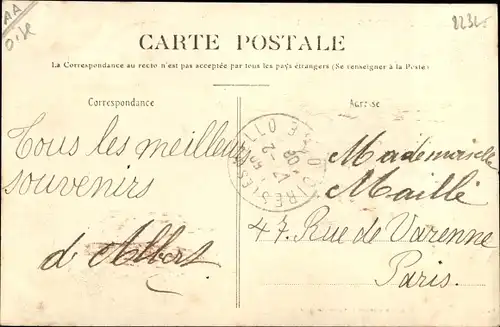 AA
Oise
CARTE POSTALE
La Correspondance au recto n'est pas acceptée par tous les pays étrangers (Se renseigner à la Poste)
Correspondance
Adresse
Tous les meilleurs
souvenirs
d'Albert
Mademoiselle
Maillé
47 Rue de Varenne
Paris.